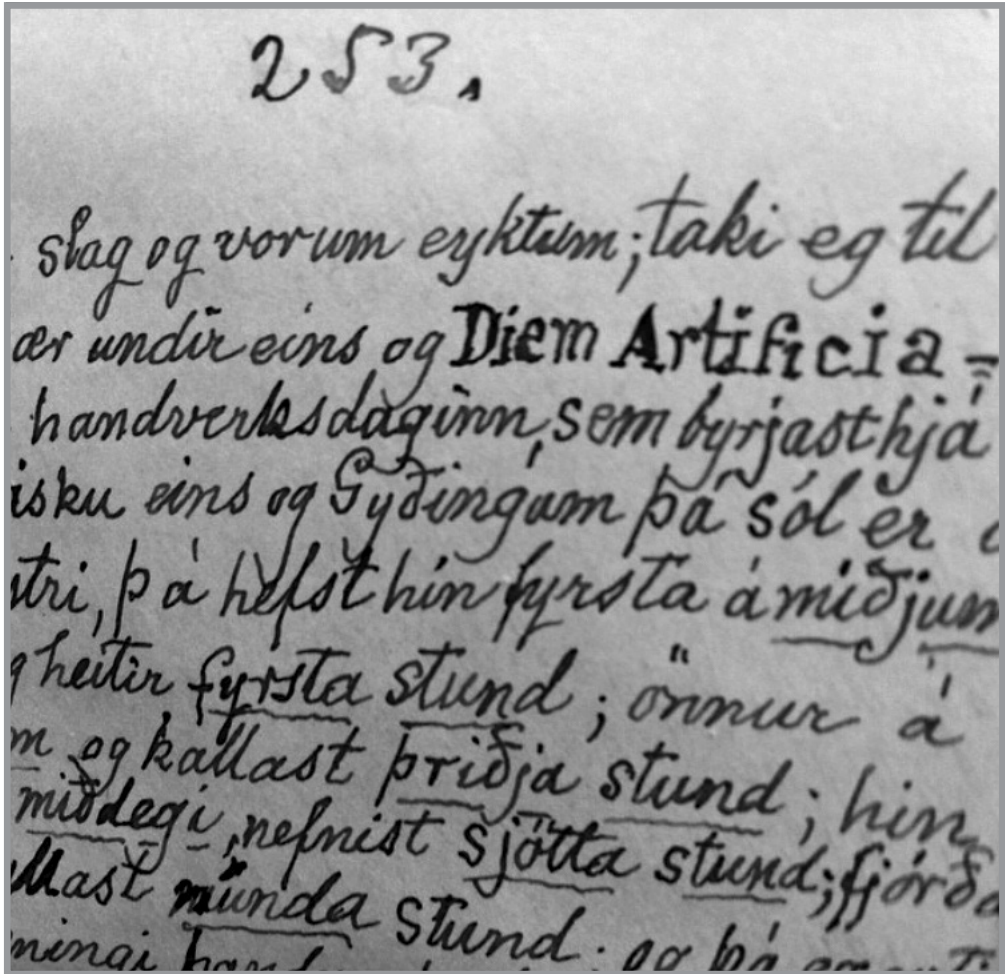 253.
slag og vorum eyktum; taki eg til
ær undir eins og Diem Artificia-
handverksdaginn, sem byrjast hjá
isku eins og Gyðingum þá sól er
stri, þá hefst hin fyrsta á miðjum
heitir fyrsta stund; önnur á
m og kallast þriðja stund; hin
miðdegi, nefnist sjötta stund; fjórða
llast níunda stund. og þá
ningi